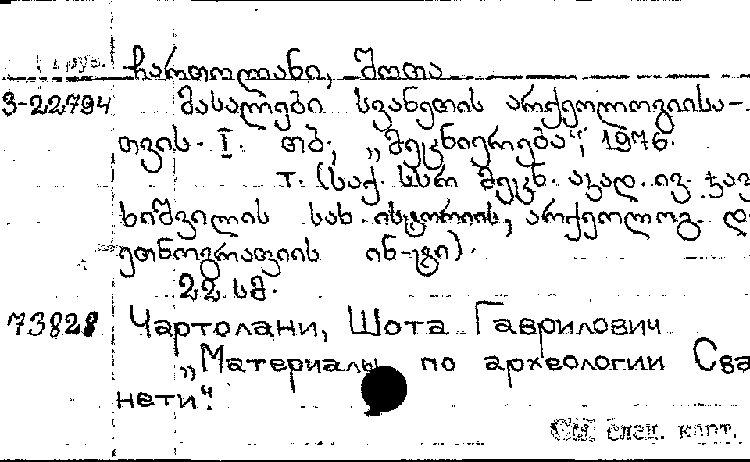 груз.
ჩართოლანი, შოთა
3-22794 მასალები სვანეთის არქეოლოგიისა-
თვის. I. თბ., „მეცნიერება“, 1976.
т. (საქ. სსრ მეცნ. აკად. ივ. ჯავ
ხიშვილის სახ. ისტორიის, არქეოლოგ. და
ეთნოგრაფიის ინ-ტი).
22 სმ.
73828 Чартолани, Шота Гаврилович
„Материалы по археологии Сва
нети“.
См. слац. карт.